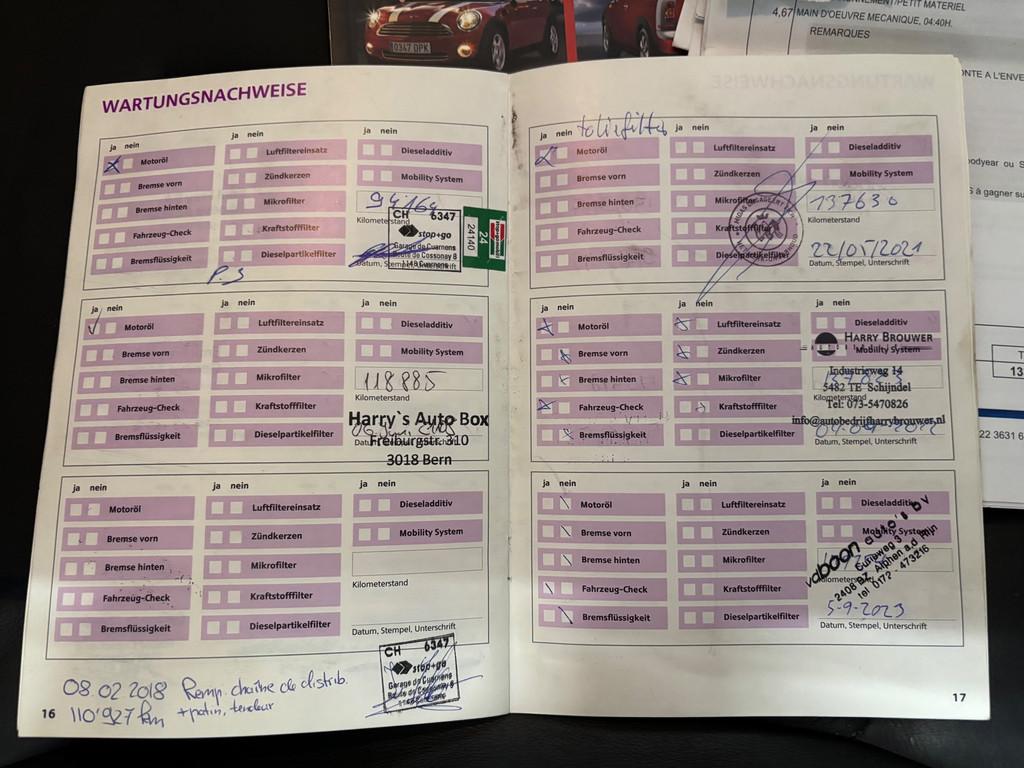 0347 DPK
NNEMENT/PETIT MATERIEL
4,67 MAIN D'OEUVRE MECANIQUE, 04:40H.
REMARQUES
WARTUNGSNACHWEISE
ja nein
ja nein
ja nein
Motoröl
Luftfiltereinsatz
Dieseladditiv
Bremse vorn
Zündkerzen
Mobility System
Bremse hinten
Mikrofilter
94164
Kilometerstand
Fahrzeug-Check
Kraftstofffilter
Bremsflüssigkeit
Dieselpartikelfilter
Datum, Stempel, Unterschrift
CH 6347
stop+go
Garage de Cuarnens
Route de Cossonay 8
1148 Cuarnens
24
24140
P.S
ja nein
ja nein
ja nein
Motoröl
Luftfiltereinsatz
Dieseladditiv
Bremse vorn
Zündkerzen
Mobility System
Bremse hinten
Mikrofilter
118885
Fahrzeug-Check
Kraftstofffilter
Bremsflüssigkeit
Dieselpartikelfilter
Harry`s Auto Box
Freiburgstr 310
3018 Bern
ja nein
ja nein
ja nein
Motoröl
Luftfiltereinsatz
Dieseladditiv
Bremse vorn
Zündkerzen
Mobility System
Bremse hinten
Mikrofilter
Kilometerstand
Fahrzeug-Check
Kraftstofffilter
Bremsflüssigkeit
Dieselpartikelfilter
Datum, Stempel, Unterschrift
CH 6347
stop+go
Garage de Cuarnens
Route de Cossonay 8
1148 Cuarnens
08.02 2018 Remp. chaîne de distrib.
110'927 km + patin, tendeur
16
ja nein
ja nein
ja nein
Motoröl
Luftfiltereinsatz
Dieseladditiv
Bremse vorn
Zündkerzen
Mobility System
Bremse hinten
Mikrofilter
137630
Kilometerstand
Fahrzeug-Check
Kraftstofffilter
22/05/2021
Bremsflüssigkeit
Dieselpartikelfilter
Datum, Stempel, Unterschrift
ja nein
ja nein
ja nein
Motoröl
Luftfiltereinsatz
Dieseladditiv
Bremse vorn
Zündkerzen
Mobility System
Bremse hinten
Mikrofilter
Kilometerstand
Fahrzeug-Check
Kraftstofffilter
Bremsflüssigkeit
Dieselpartikelfilter
Datum, Stempel, Unterschrift
HARRY BROUWER
Industrieweg 14
5482 TE Schijndel
Tel: 073-5470826
info@autobedrijfharrybrouwer.nl
ja nein
ja nein
ja nein
Motoröl
Luftfiltereinsatz
Dieseladditiv
Bremse vorn
Zündkerzen
Mobility System
Bremse hinten
Mikrofilter
Kilometerstand
Fahrzeug-Check
Kraftstofffilter
5-9-2023
Bremsflüssigkeit
Dieselpartikelfilter
Datum, Stempel, Unterschrift
vaboon auto's bv
2408 BZ Alphen a.d. Rijn
tel 0172 - 473216
17
ONTE A L'ENVE
oodyear ou S
à gagner su